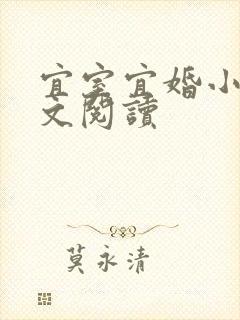 宜室宜婚小
文閱讀
莫永清